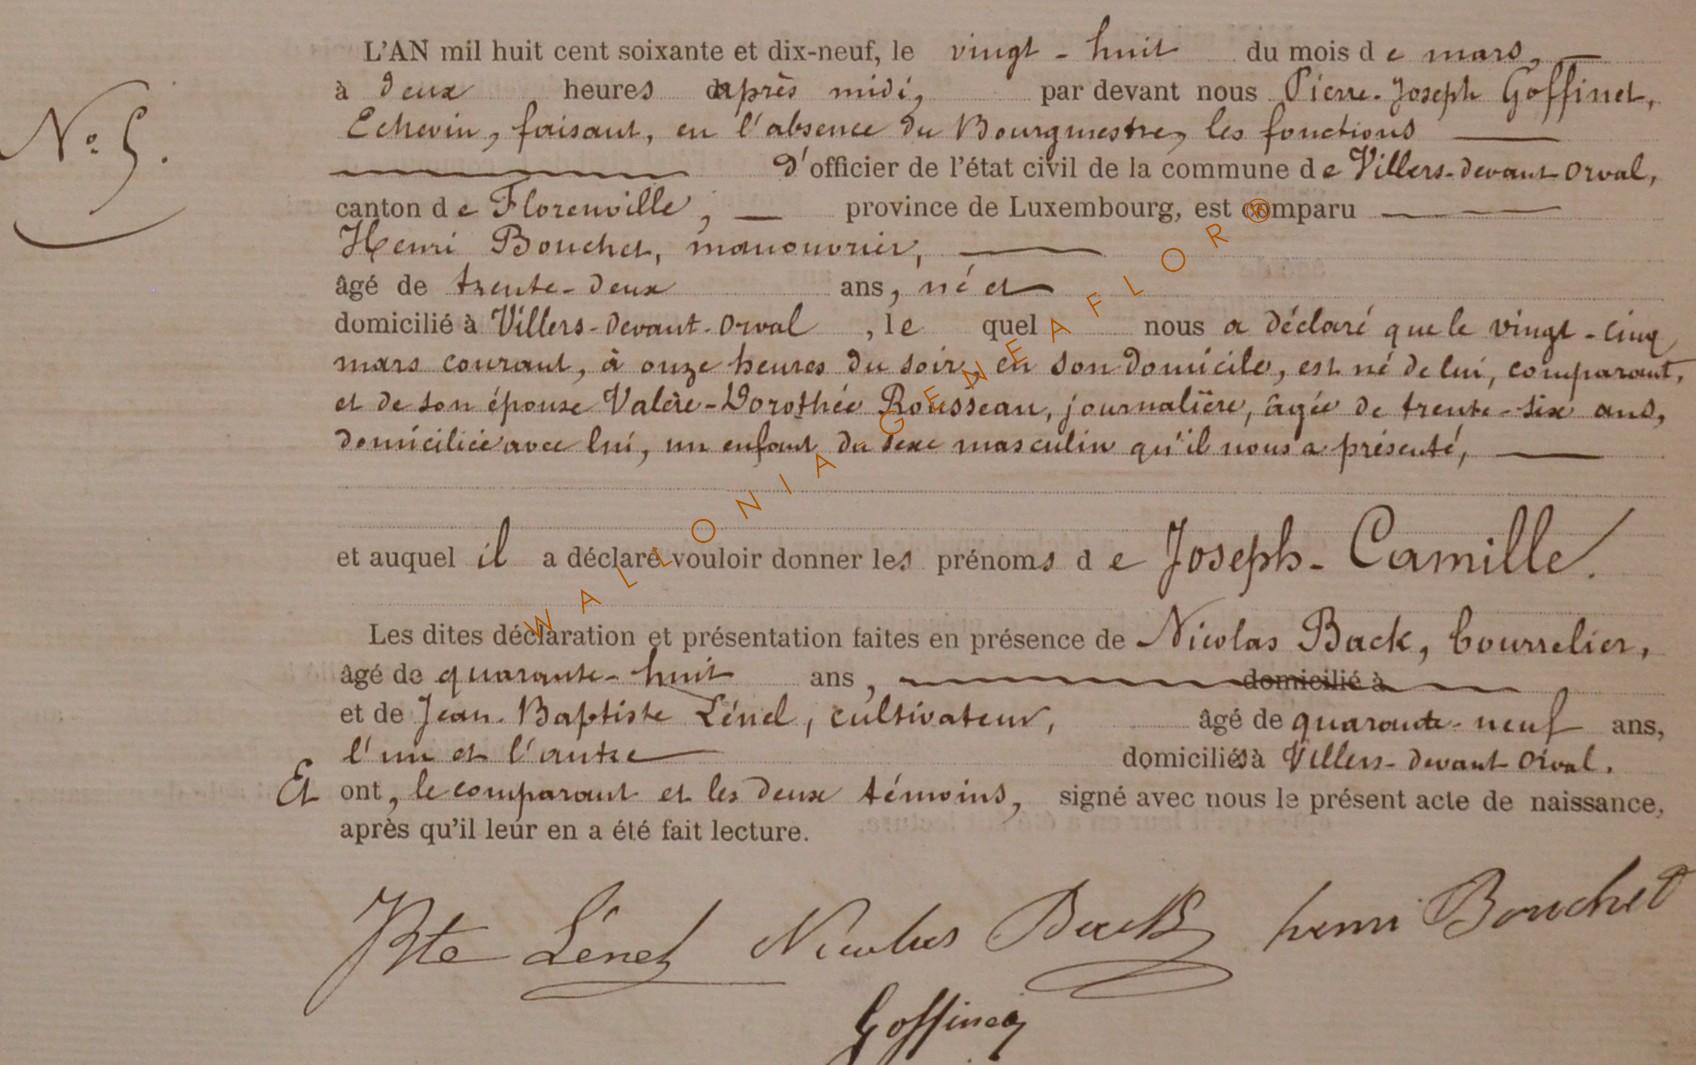 L'AN mil huit cent soixante et dix-neuf, le vingt-huit du mois de mars,
à deux heures après midi, par devant nous Pierre-Joseph Goffinet,
Echevin, faisant, en l'absence du Bourgmestre, les fonctions
d'officier de l'état civil de la commune de Villers-devant-Orval,
N° 5.
canton de Florenville, province de Luxembourg, est comparu
Henri Bouchet, manouvrier,
âgé de trente-deux ans, né et
domicilié à Villers-devant-Orval, lequel nous a déclaré que le vingt-cinq
mars courant, à onze heures du soir, en son domicile, est né de lui, comparant,
et de son épouse Valérie-Dorothée Rousseau, journalière, âgée de trente-six ans,
domiciliée avec lui, un enfant du sexe masculin qu'il nous a présenté,
et auquel il a déclaré vouloir donner les prénoms de Joseph-Camille.
Les dites déclaration et présentation faites en présence de Nicolas Back, bourrelier,
âgé de quarante-huit ans, domicilié à
et de Jean-Baptiste Lénel, cultivateur, âgé de quarante-neuf ans,
l'un et l'autre domiciliés à Villers-devant-Orval.
Et ont, le comparant et les deux témoins, signé avec nous le présent acte de naissance,
après qu'il leur en a été fait lecture.
JBte Lénel Nicolas Back henri Bouchet
Goffinet
WALLONIA-GENEAFLOR®